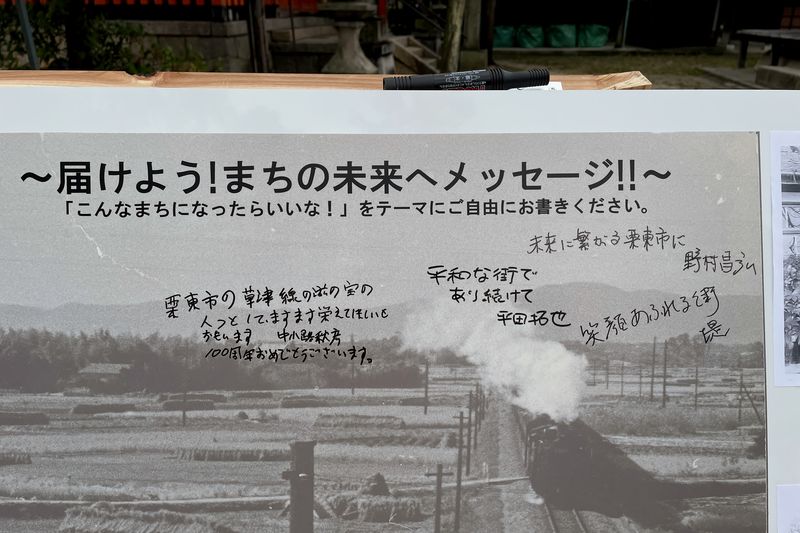 ～届けよう!まちの未来へメッセージ!!～
「こんなまちになったらいいな！」をテーマにご自由にお書きください。
未来に繁がる栗東市に
野村昌弘
平和な街で
あり続けて
平田拓也
笑顔あふれる街
堤
栗東市の草津線の滋の宝の
人つとしてますます栄えてほしいと
おもいます 中小路秋彦
100周年おめでとうございます。